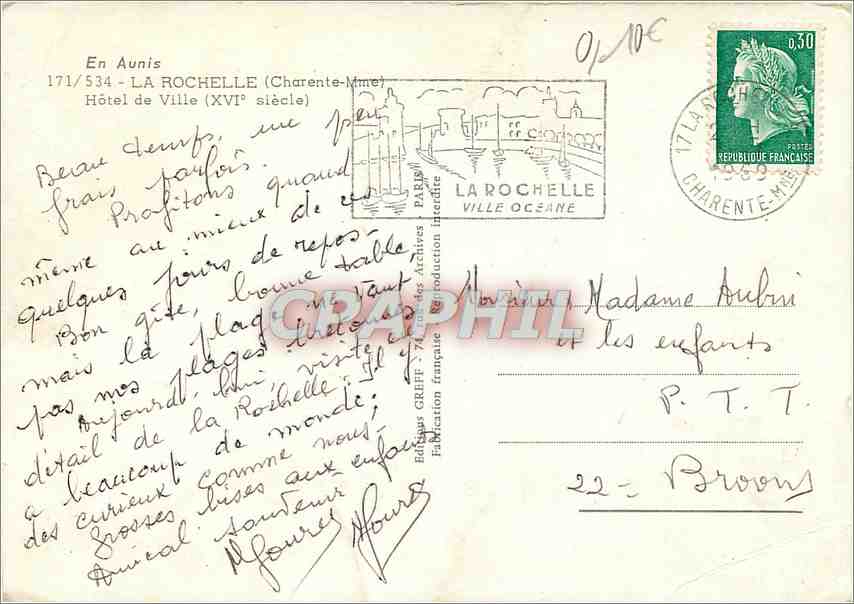 En Aunis
171/534 - LA ROCHELLE (Charente-Mme)
Hôtel de Ville (XVIᵉ siècle)
0,10€
0,30
POSTES
REPUBLIQUE FRANÇAISE
17 LA ROCHELLE
1969
CHARENTE-Mme
LA ROCHELLE
VILLE OCEANE
Beau temps, un peu
frais parfois.
Profitons quand
même au mieux de ces
quelques jours de repos.
Bon gîte, bonne table,
mais la plage ne vaut
pas nos plages bretonnes
Aujourd'hui, visite en
détail de la Rochelle. Il y
a beaucoup de monde,
des curieux comme nous.
Grosses bises aux enfants
Amical souvenir
Editions GREFF - 74, rue des Archives - PARIS
Fabrication française - Reproduction interdite
CPAPHIL
Monsieur, Madame Aubin
et les enfants
P. T. T.
22 - Broons